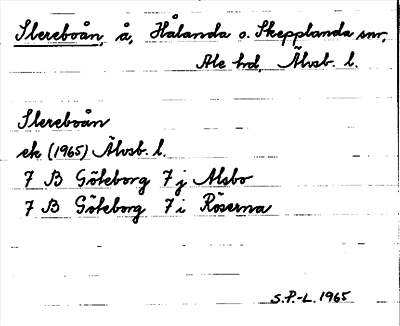 Slereboån, å, Hålanda o. Skepplanda snr,
Ale hd, Älvsb. l.
Slereboån
ek (1965) Älvsb. l.
7 B Göteborg 7 j Alsbo
7 B Göteborg 7 i Röserna
S.P.-L. 1965